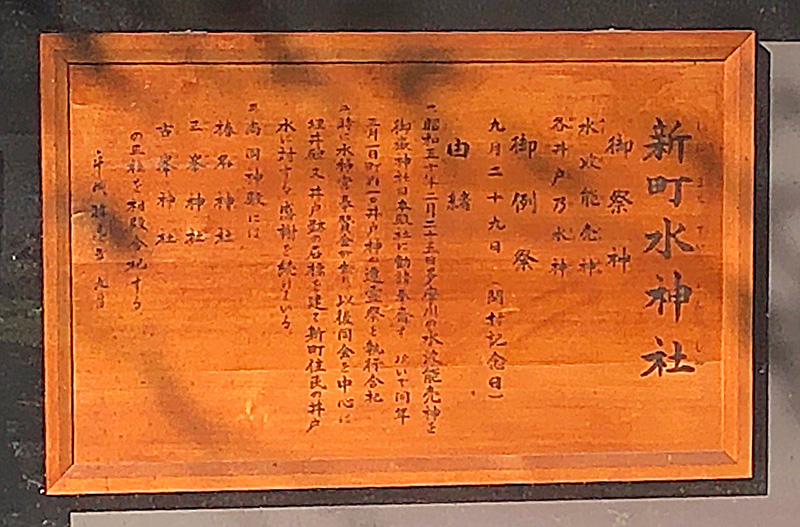 新町水神社
御祭神
水次能売神
各井戸乃水神
御例祭
九月二十九日（開村記念日）
由緒
一、昭和五十年二月二十五日多摩川の水次能売神を
御嶽神社旧本殿社に勧請奉斎す 次いで同年
三月一日町内一の井戸神の遷霊祭を執行合祀
二、時に水神宮奉賛会が有り以後同会を中心に
埋井祭 又 井戸跡の石標を建て新町住民の井戸
水に対する感謝を続けている。
三、尚同神殿には
榛名神社
三峯神社
古峯神社
の三社を相殿合祀する
平成 年 九月